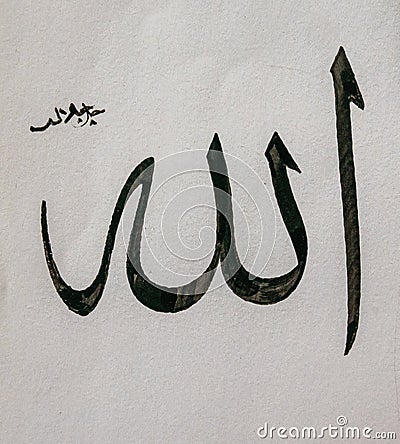 الله
جل جلاله
dreamstime.com